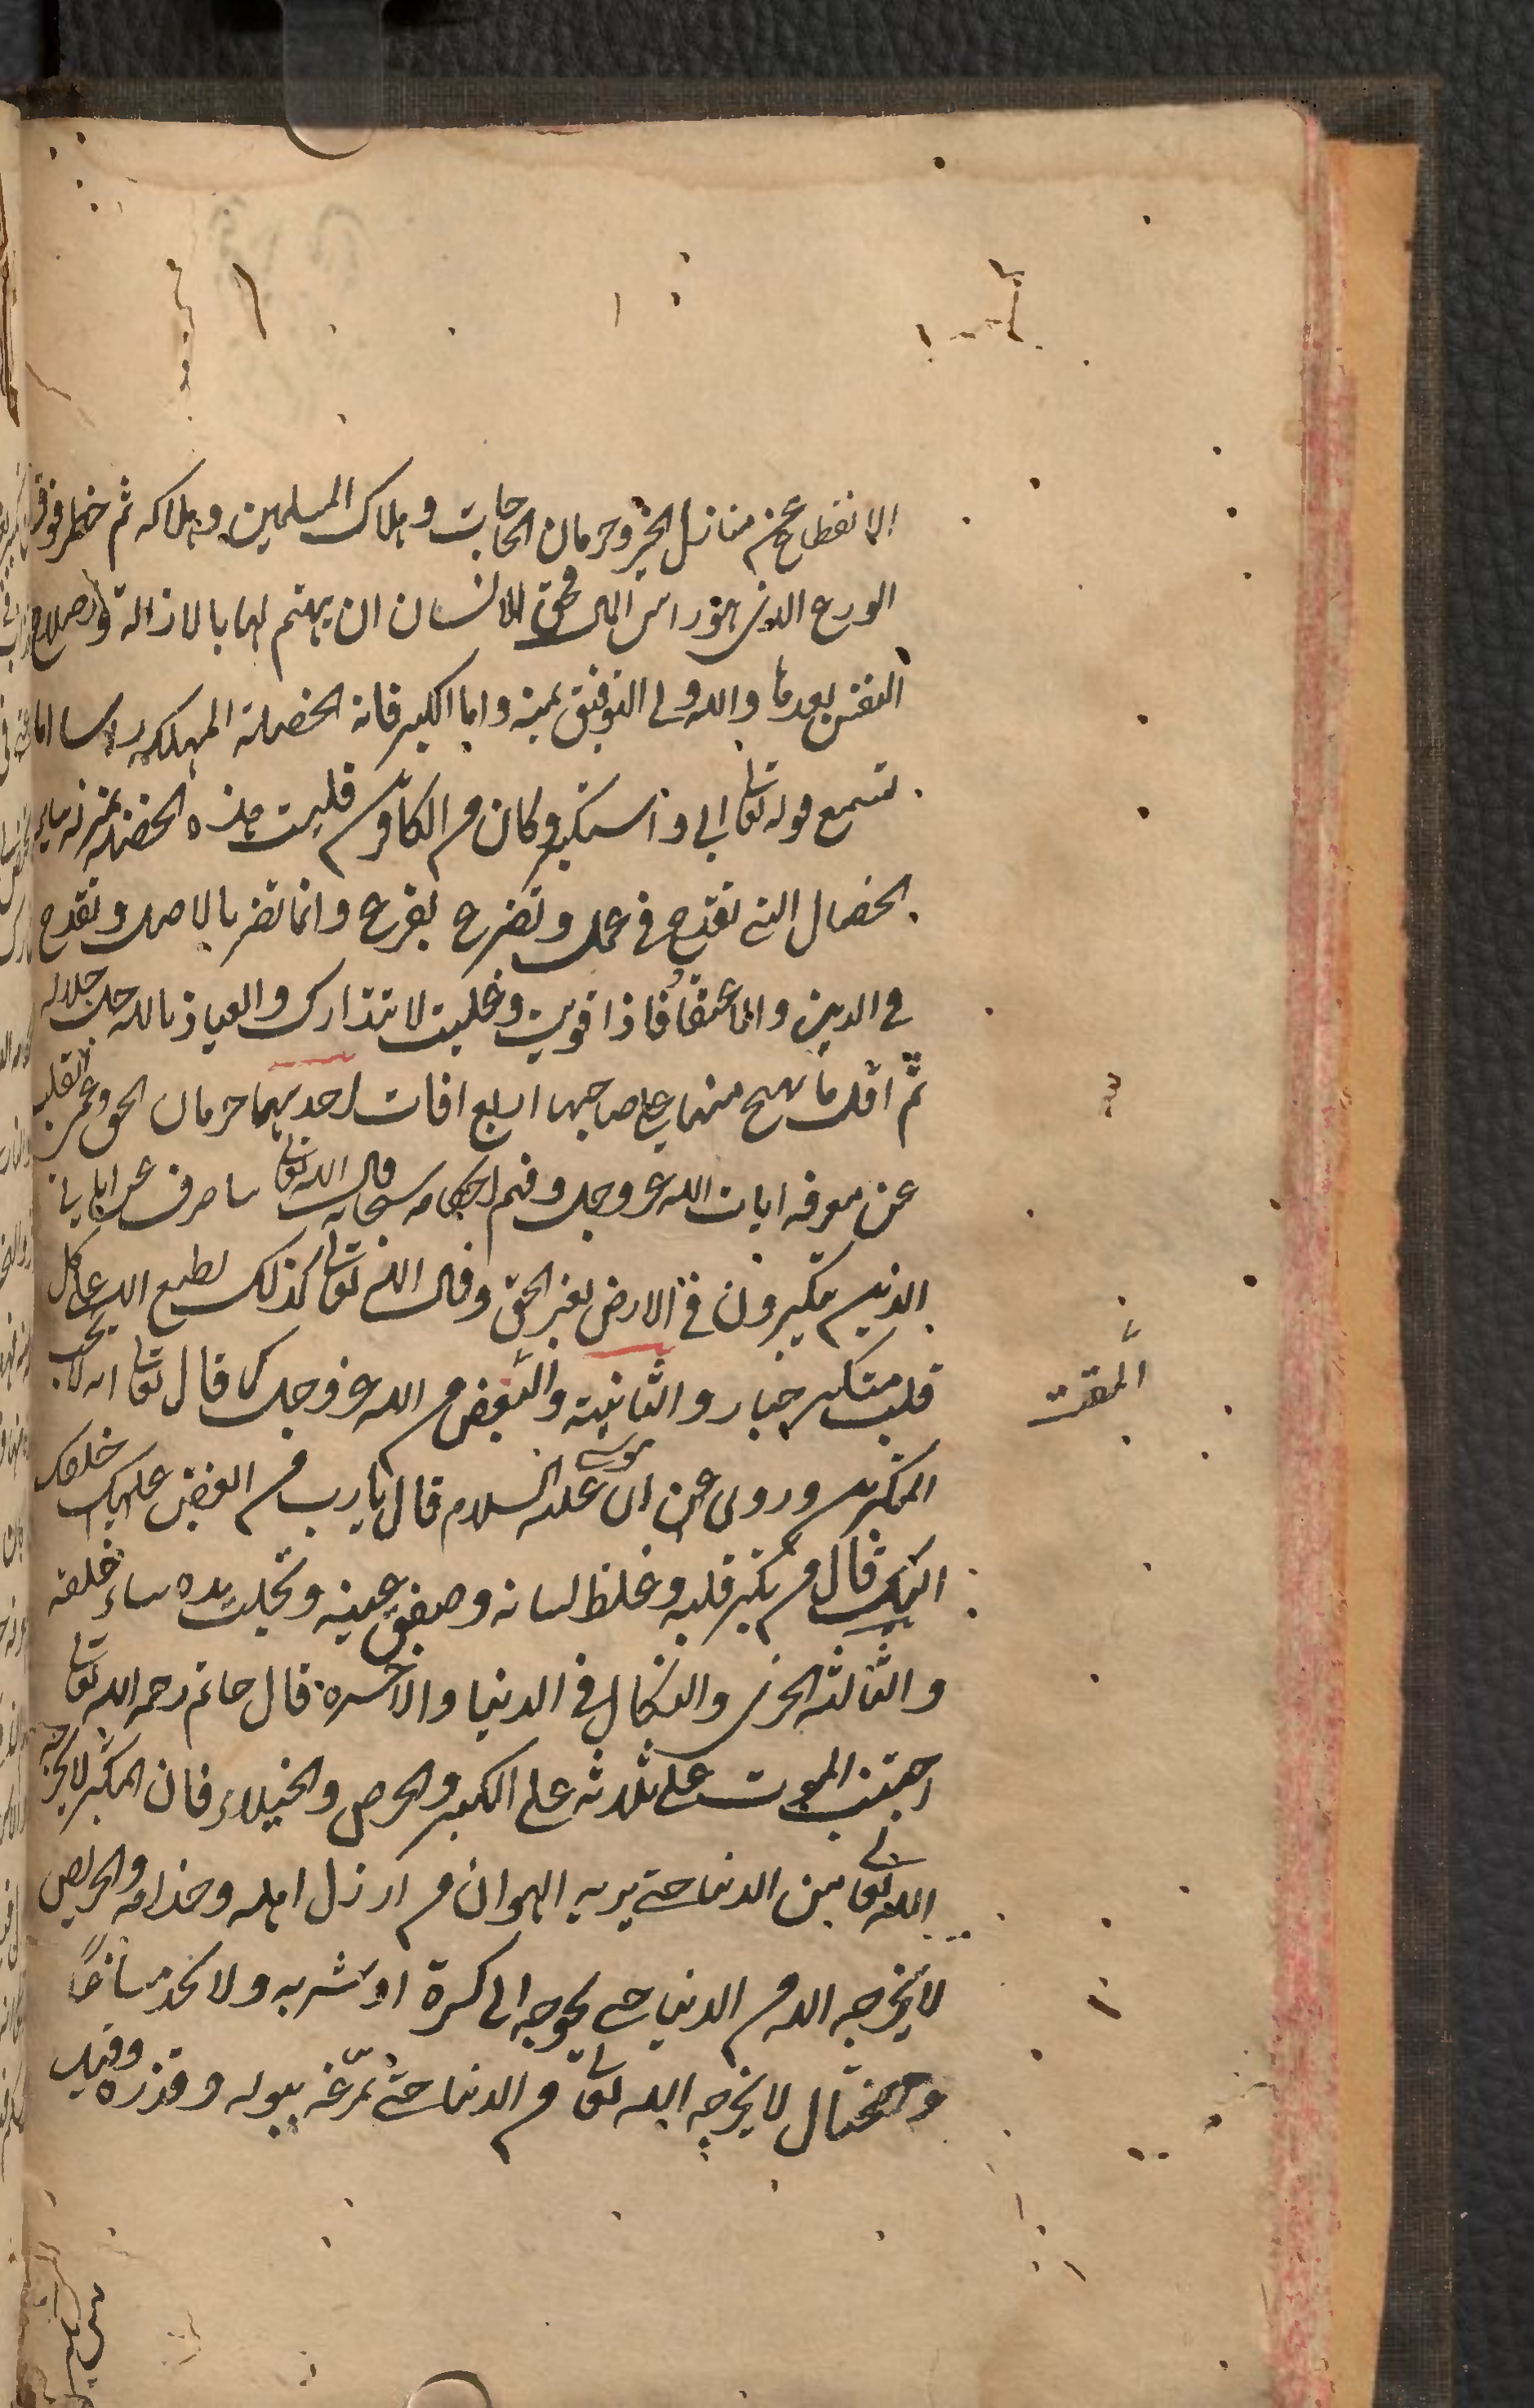 الانقطاع عن منازل الخير وحرمان الحاجات وهلاك المسلمين وهلاكه ثم خطر فوق
الورع الذي هو راس المال فحق للانسان ان يهتم لها بالازالة واصلاح
النفس بعدها والله ولى التوفيق بمنه واما الكبر فانه الخصلة المهلكه راسا اما
تسمع قوله تعا ابى واستكبر وكان م الكافرين فليست هذه الخصلة بمنزله ساير
الخصال التى تقدح فى عمل وتضر ح بفرع وانما تضر بالاصل وتقدح
فى الدين والاعتقاد فاذا قويت وغلبت لا تتدارك والعياذ بالله جل جلاله
ثم اقل ما يهيج منها على صاحبها اربع افات احديهما حرمان الحق وعمى القلب
عن معرفه ايات الله عز وجل وفهم احكامه سبحانه قال الله تعا ساصرف عن اياتى
الذين يتكبرون فى الارض بغير الحق وقال الله تعا كذلك يطبع الله على كل
قلب متكبر جبار والثانية والبغض م الله عز وجل كما قال تعا انه لا يحب
المقت
المتكبرين وروى عن ان موسى عليه السلام قال يا رب م ابغض عليك خلقك
اليك قال م تكبر قلبه وغلظ لسانه وصفق عينه وبخلت يده ساء خلقه
والثالثه الخزى والنكال فى الدنيا والاخره قال حاتم رحمه الله تعا
اجتنب الموت على ثلاثه على الكبر والحرص والخيلاء فان المتكبر لا يخرجه
الله تعا من الدنيا حتى يريه الهوان م ارذل اهله وخدامه والحريص
لا يخرجه الله م الدنيا حتى يحوجه الى كسرة او شربه ولا يجد مساغا
والمختال لا يخرجه الله تعا م الدنيا حتى يمرغه ببوله وقذره وقيل